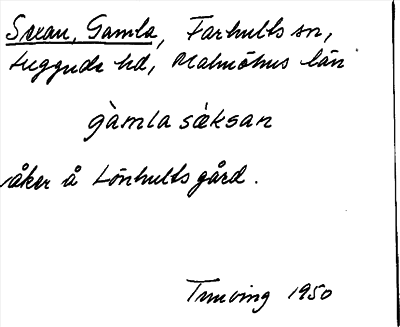 Sexan, Gamla, Farhults sn,
Luggude hd, Malmöhus län
gàmla sæ̀ksan
åker å Lönhults gård.
1950